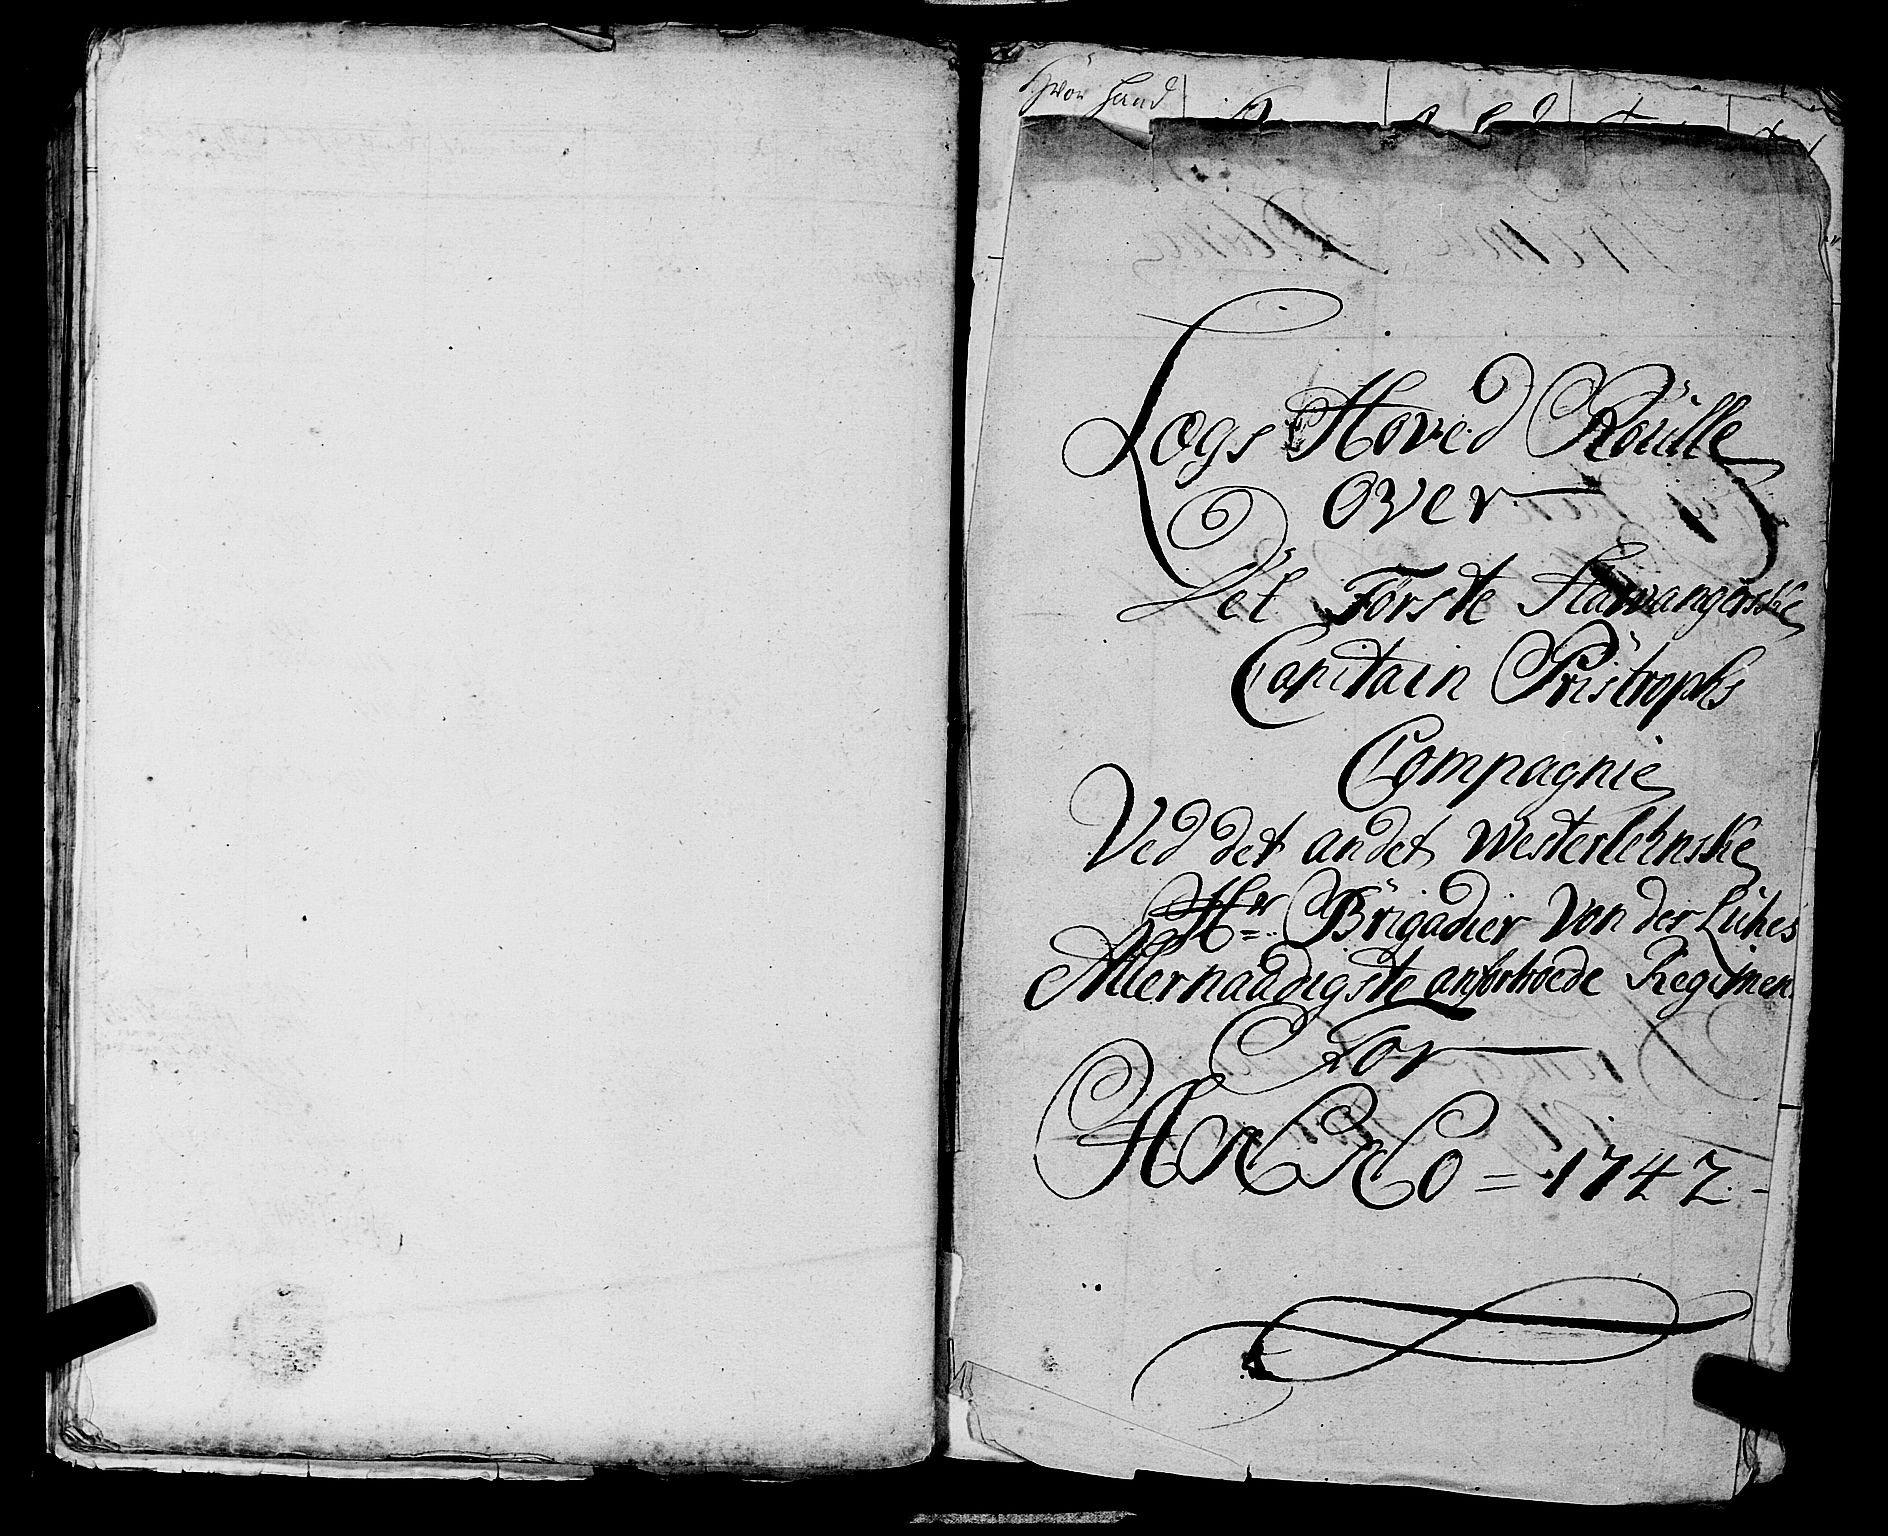 Hvor Haand
Lægs Hoved Roülle
over
Det Förste Stavangerske
Capitain Pristrophs
Compagnie
Ved det andet Westerlehnske
Hr Brigadier Von der Lühes
Allernaadigste anfortroede Regimen
For
ANNO = 1742